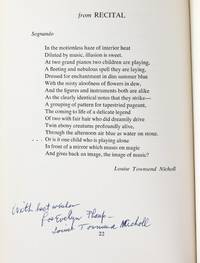 from RECITAL
Sognando
In the motionless haze of interior heat
Diluted by music, illusion is sweet.
At two grand pianos two children are playing,
A fleeting and nebulous spell they are laying,
Dressed for enchantment in dim summer blue
With the misty aloofness of flowers in dew,
And the figures and instruments both are alike
As the clearly identical notes that they strike—
A grouping of pattern for tapestried pageant,
The coming to life of a delicate legend
Of two with fair hair who did dreamily drive
Twin ebony creatures profoundly alive,
Through the afternoon air blue as water on stone.
. . . Or is it one child who is playing alone
In front of a mirror which muses on magic
And gives back an image, the image of music?
Louise Townsend Nicholl
With best wishes
for Evelyn Tharp—
Louise Townsend Nicholl
22